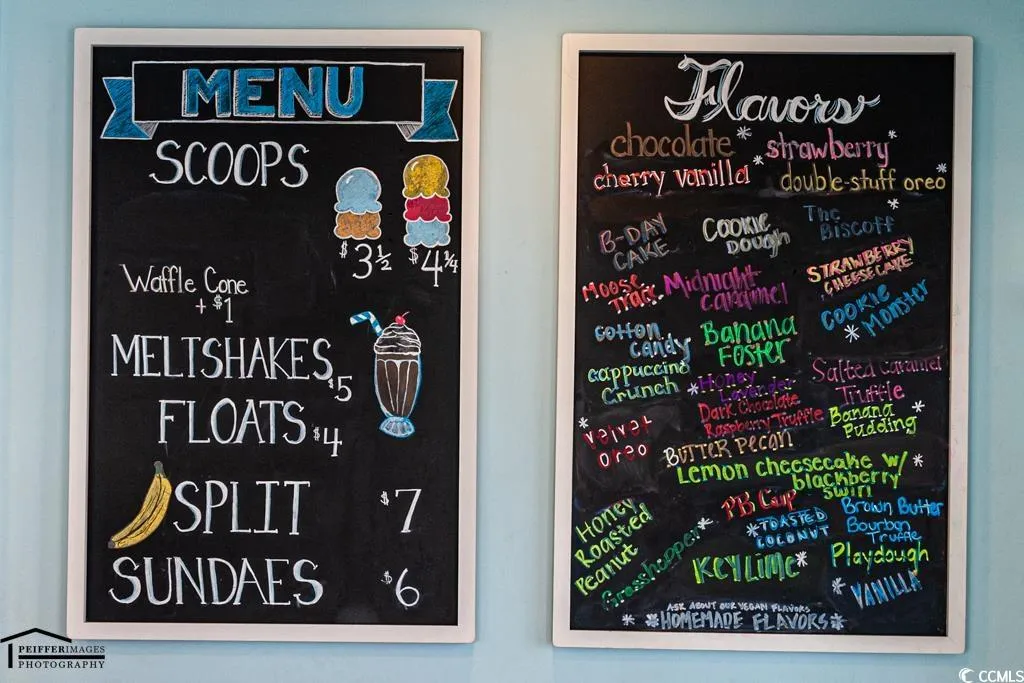 MENU
SCOOPS
$3½
$4¼
Waffle Cone
+ $1
MELTSHAKES $5
FLOATS $4
SPLIT $7
SUNDAES $6
Flavors
chocolate * strawberry *
cherry vanilla * double-stuff oreo *
B-DAY CAKE
COOKIE DOUGH
The BISCOFF
MOOSE TRAC
Midnight caramel
STRAWBERRY CHEESECAKE
cotton candy
Banana FOSTER
COOKIE MONSTER *
cappuccino crunch
* Honey Lavender
Salted Caramel Truffle
* Velvet Oreo
Dark Chocolate Raspberry Truffle
Banana Pudding *
BUTTER PECAN
Lemon cheesecake w/ blackberry swirl *
Honey Roasted Peanut
PB CUP
Brown Butter Bourbon Truffle
Grasshopper *
* TOASTED COCONUT
KEY LIME *
Playdough
* VANILLA
ASK ABOUT OUR VEGAN FLAVORS
* HOMEMADE FLAVORS *
PEIFFERIMAGES
PHOTOGRAPHY
CCMLS